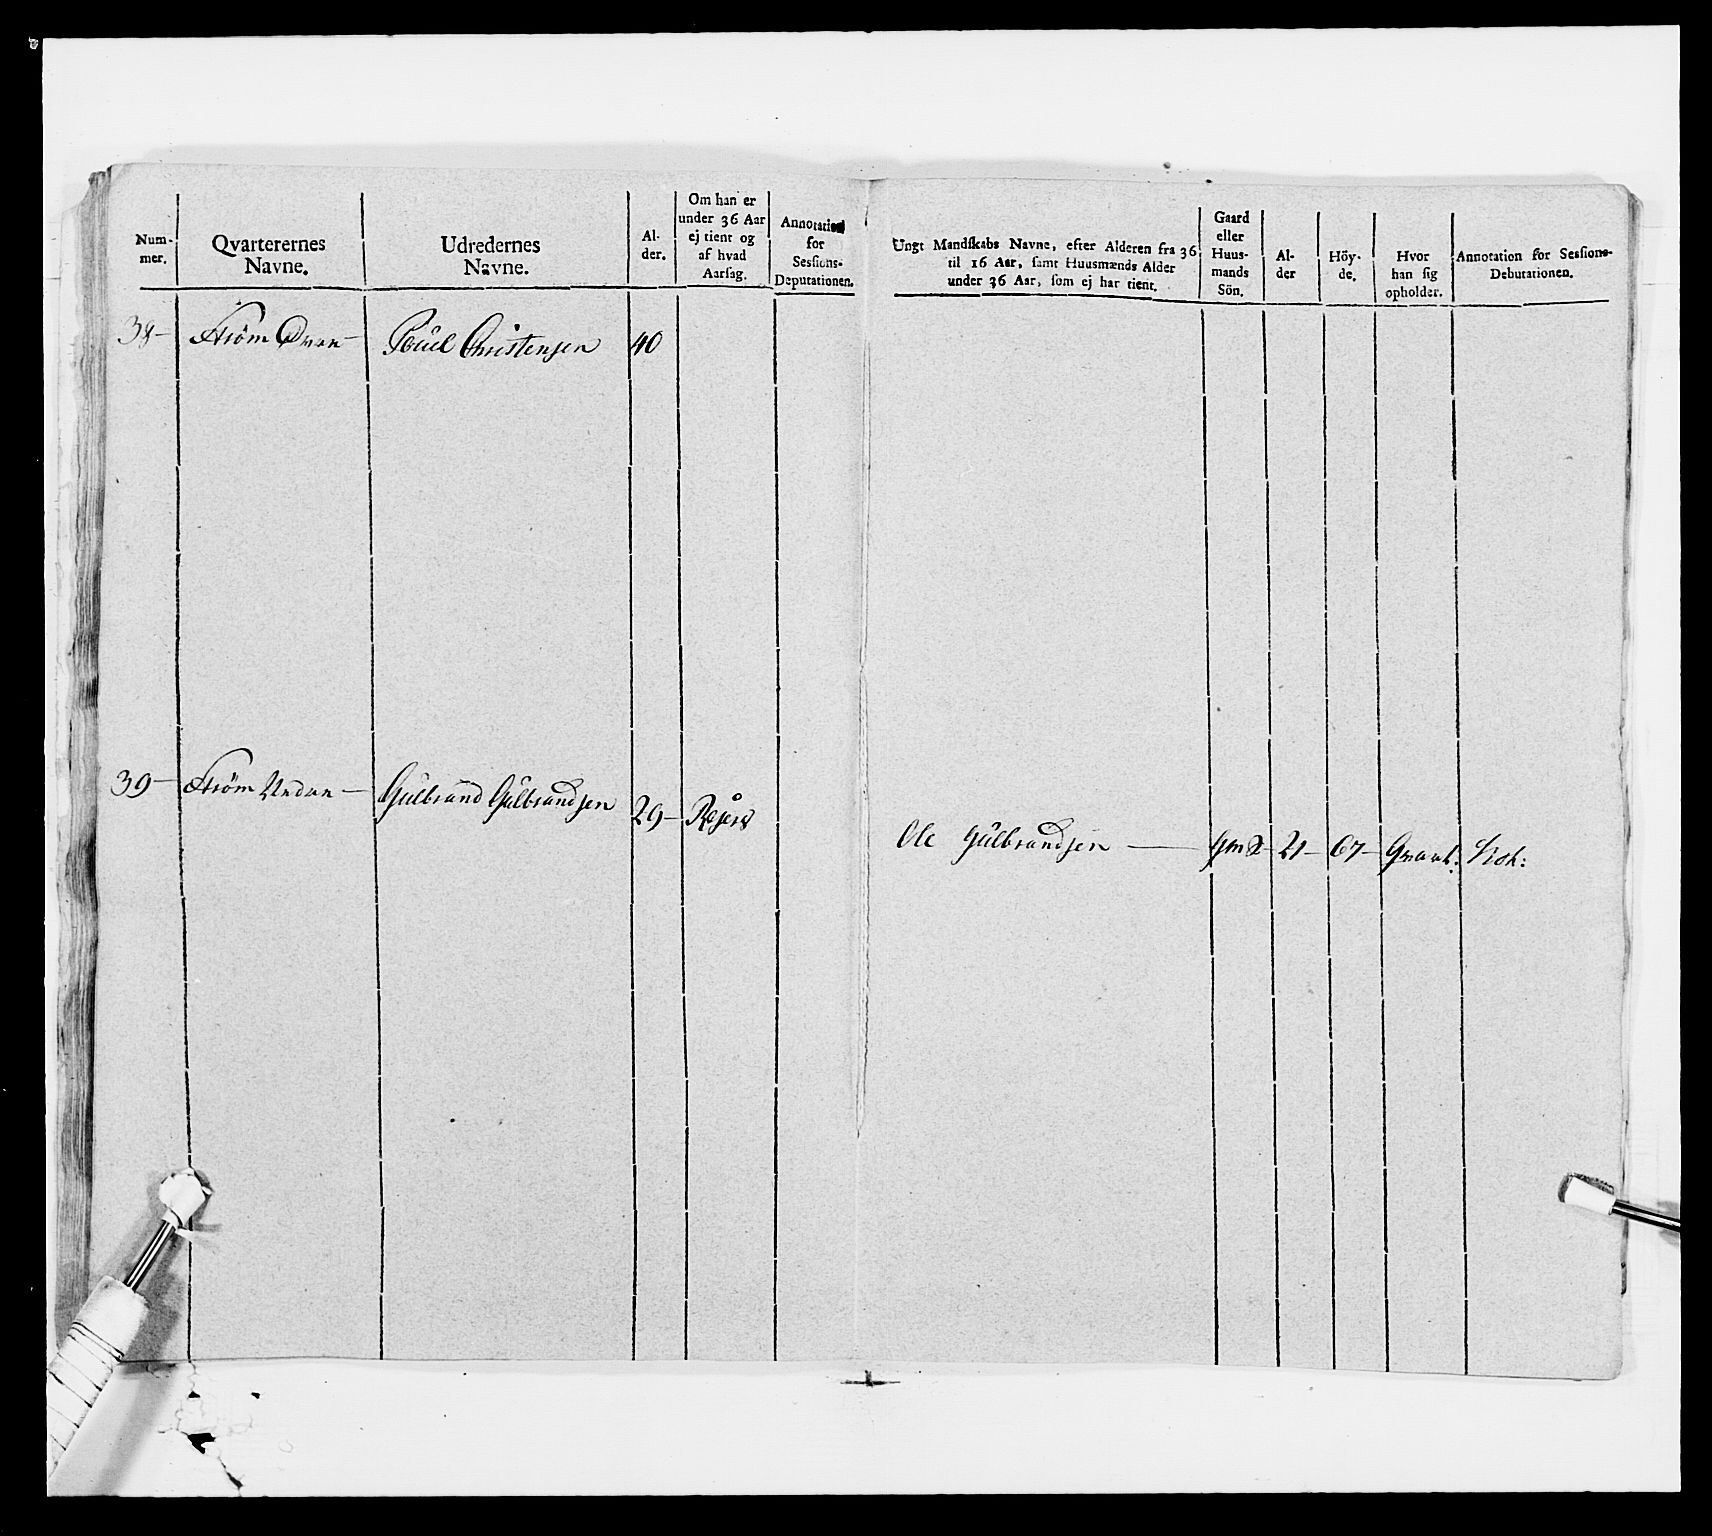 Num-
mer.
Qvarterernes
Navne.
Udredernes
Navne.
Al-
der.
Om han er
under 36 Aar
ej tient og
af hvad
Aarsag.
Annotation
for
Sessions-
Deputationen.
Ungt Mandskabs Navne, efter Alderen fra 36
til 16 Aar, samt Huusmænds Alder
under 36 Aar, som ej har tient.
Gaard
eller
Huus-
mands
Sön.
Al-
der
Höy-
de.
Hvor
han sig
opholder.
Annotation for Sessions-
Debutationen.
38- Ström Øvre- Poül Christensen 40
39- Ström Nedre- Gülbrand Gülbrandsen 29-
Ole Gülbrandsen - 21- 67-